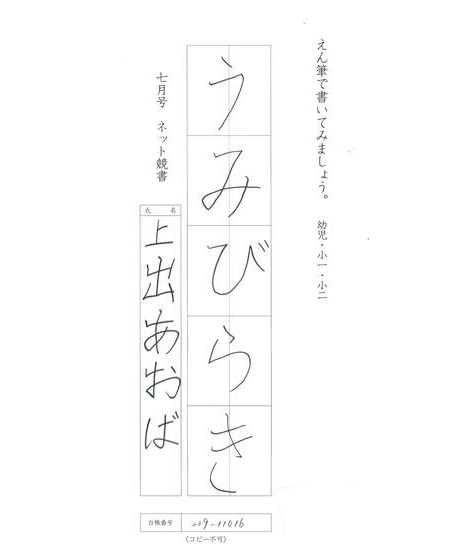 えん筆で書いてみましょう。　幼児・小一・小二
うみびらき
七月号　ネット競書
氏名
上出あおば
台帳番号
239-11016
(コピー不可)